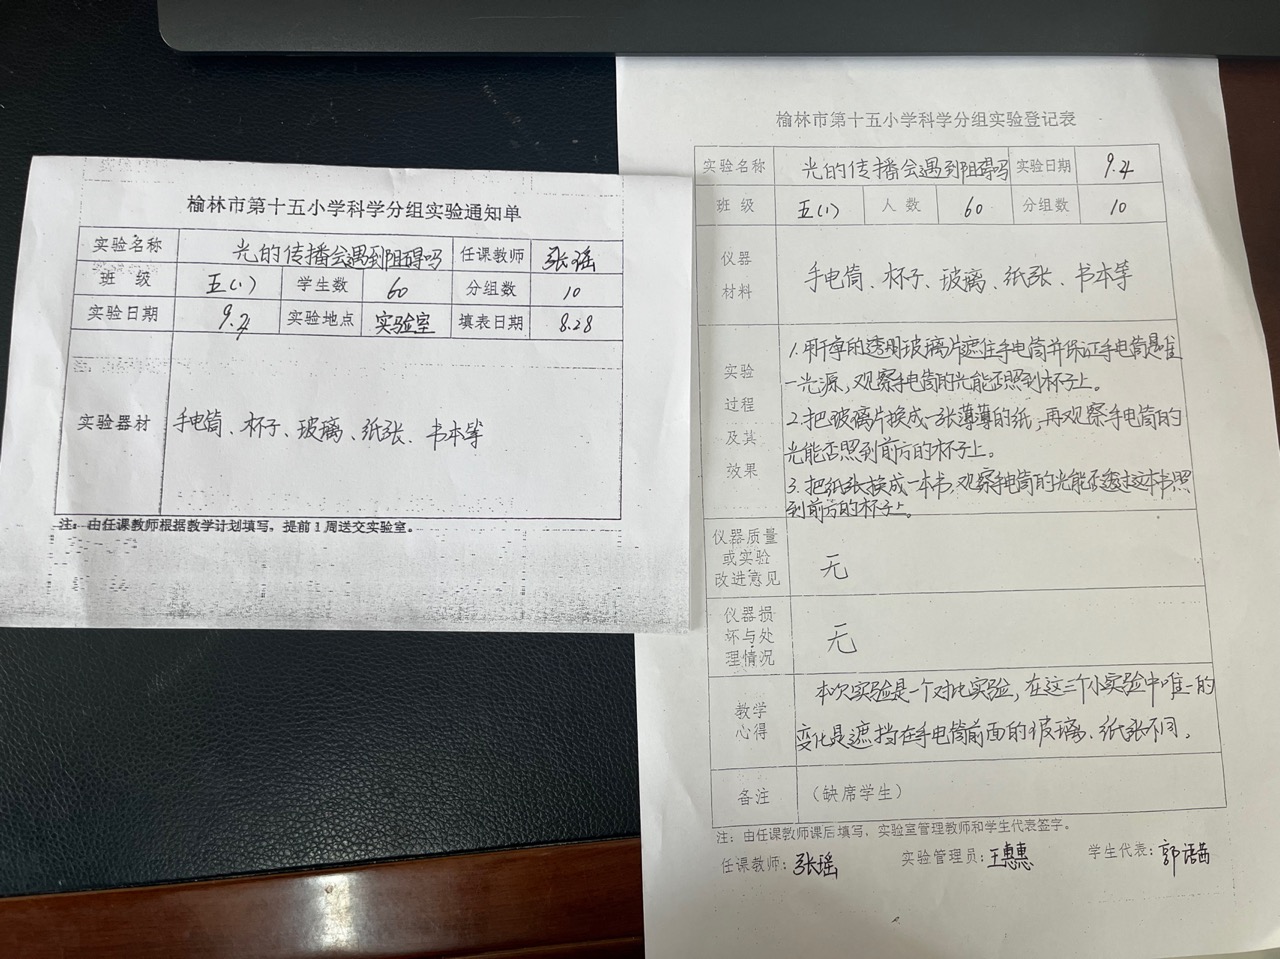 榆林市第十五小学科学分组实验通知单
实验名称 光的传播会遇到阻碍吗 任课教师 张瑶
班 级 五(1) 学生数 60 分组数 10
实验日期 9.4 实验地点 实验室 填表日期 8.28
实验器材 手电筒、杯子、玻璃、纸张、书本等
注: 由任课教师根据教学计划填写,提前1周送交实验室。
榆林市第十五小学科学分组实验登记表
实验名称 光的传播会遇到阻碍吗 实验日期 9.4
班 级 五(1) 人 数 60 分组数 10
仪器
材料
手电筒、杯子、玻璃、纸张、书本等
实验
过程
及其
效果
1.用干净的透明玻璃片遮住手电筒并保证手电筒是唯
一光源,观察手电筒的光能否照到杯子上。
2.把玻璃片换成一张薄薄的纸,再观察手电筒的
光能否照到前方的杯子上。
3.把纸张换成一本书,观察手电筒的光能否透过这本书照
到前方的杯子上。
仪器质量
或实验
改进意见
无
仪器损
坏与处
理情况
无
教学
心得
本次实验是一个对比实验,在这三个小实验中唯一的
变化是遮挡在手电筒前面的玻璃、纸张不同。
备注 (缺席学生)
注:由任课教师课后填写,实验室管理教师和学生代表签字。
任课教师:张瑶 实验管理员:王惠惠 学生代表:郭